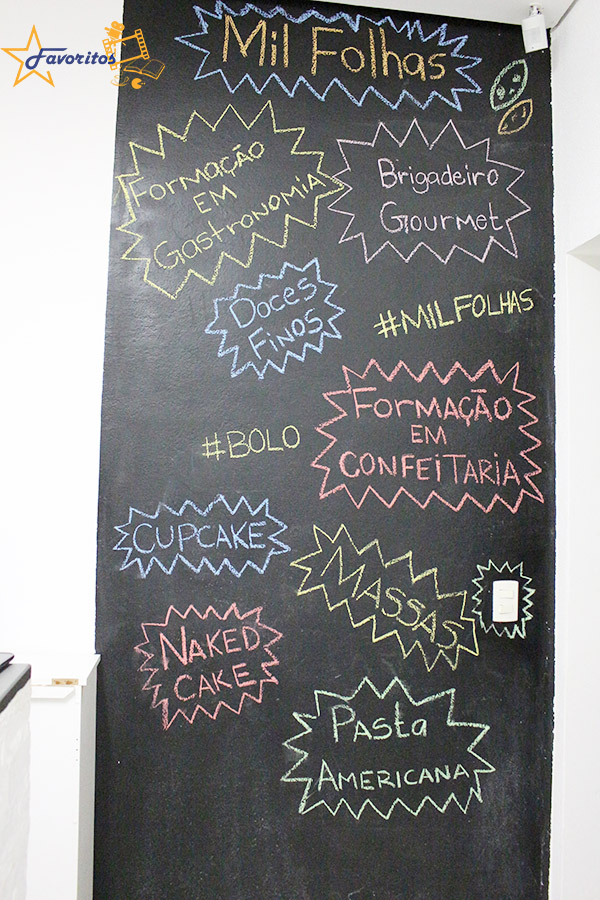 Favoritos
Mil Folhas
Formação
EM
Gastronomia
Brigadeiro
Gourmet
Doces
Finos
#MILFOLHAS
Formação
EM
CONFEITARIA
#BOLO
CUPCAKE
MASSAS
NAKED
CAKE
Pasta
AMERICANA